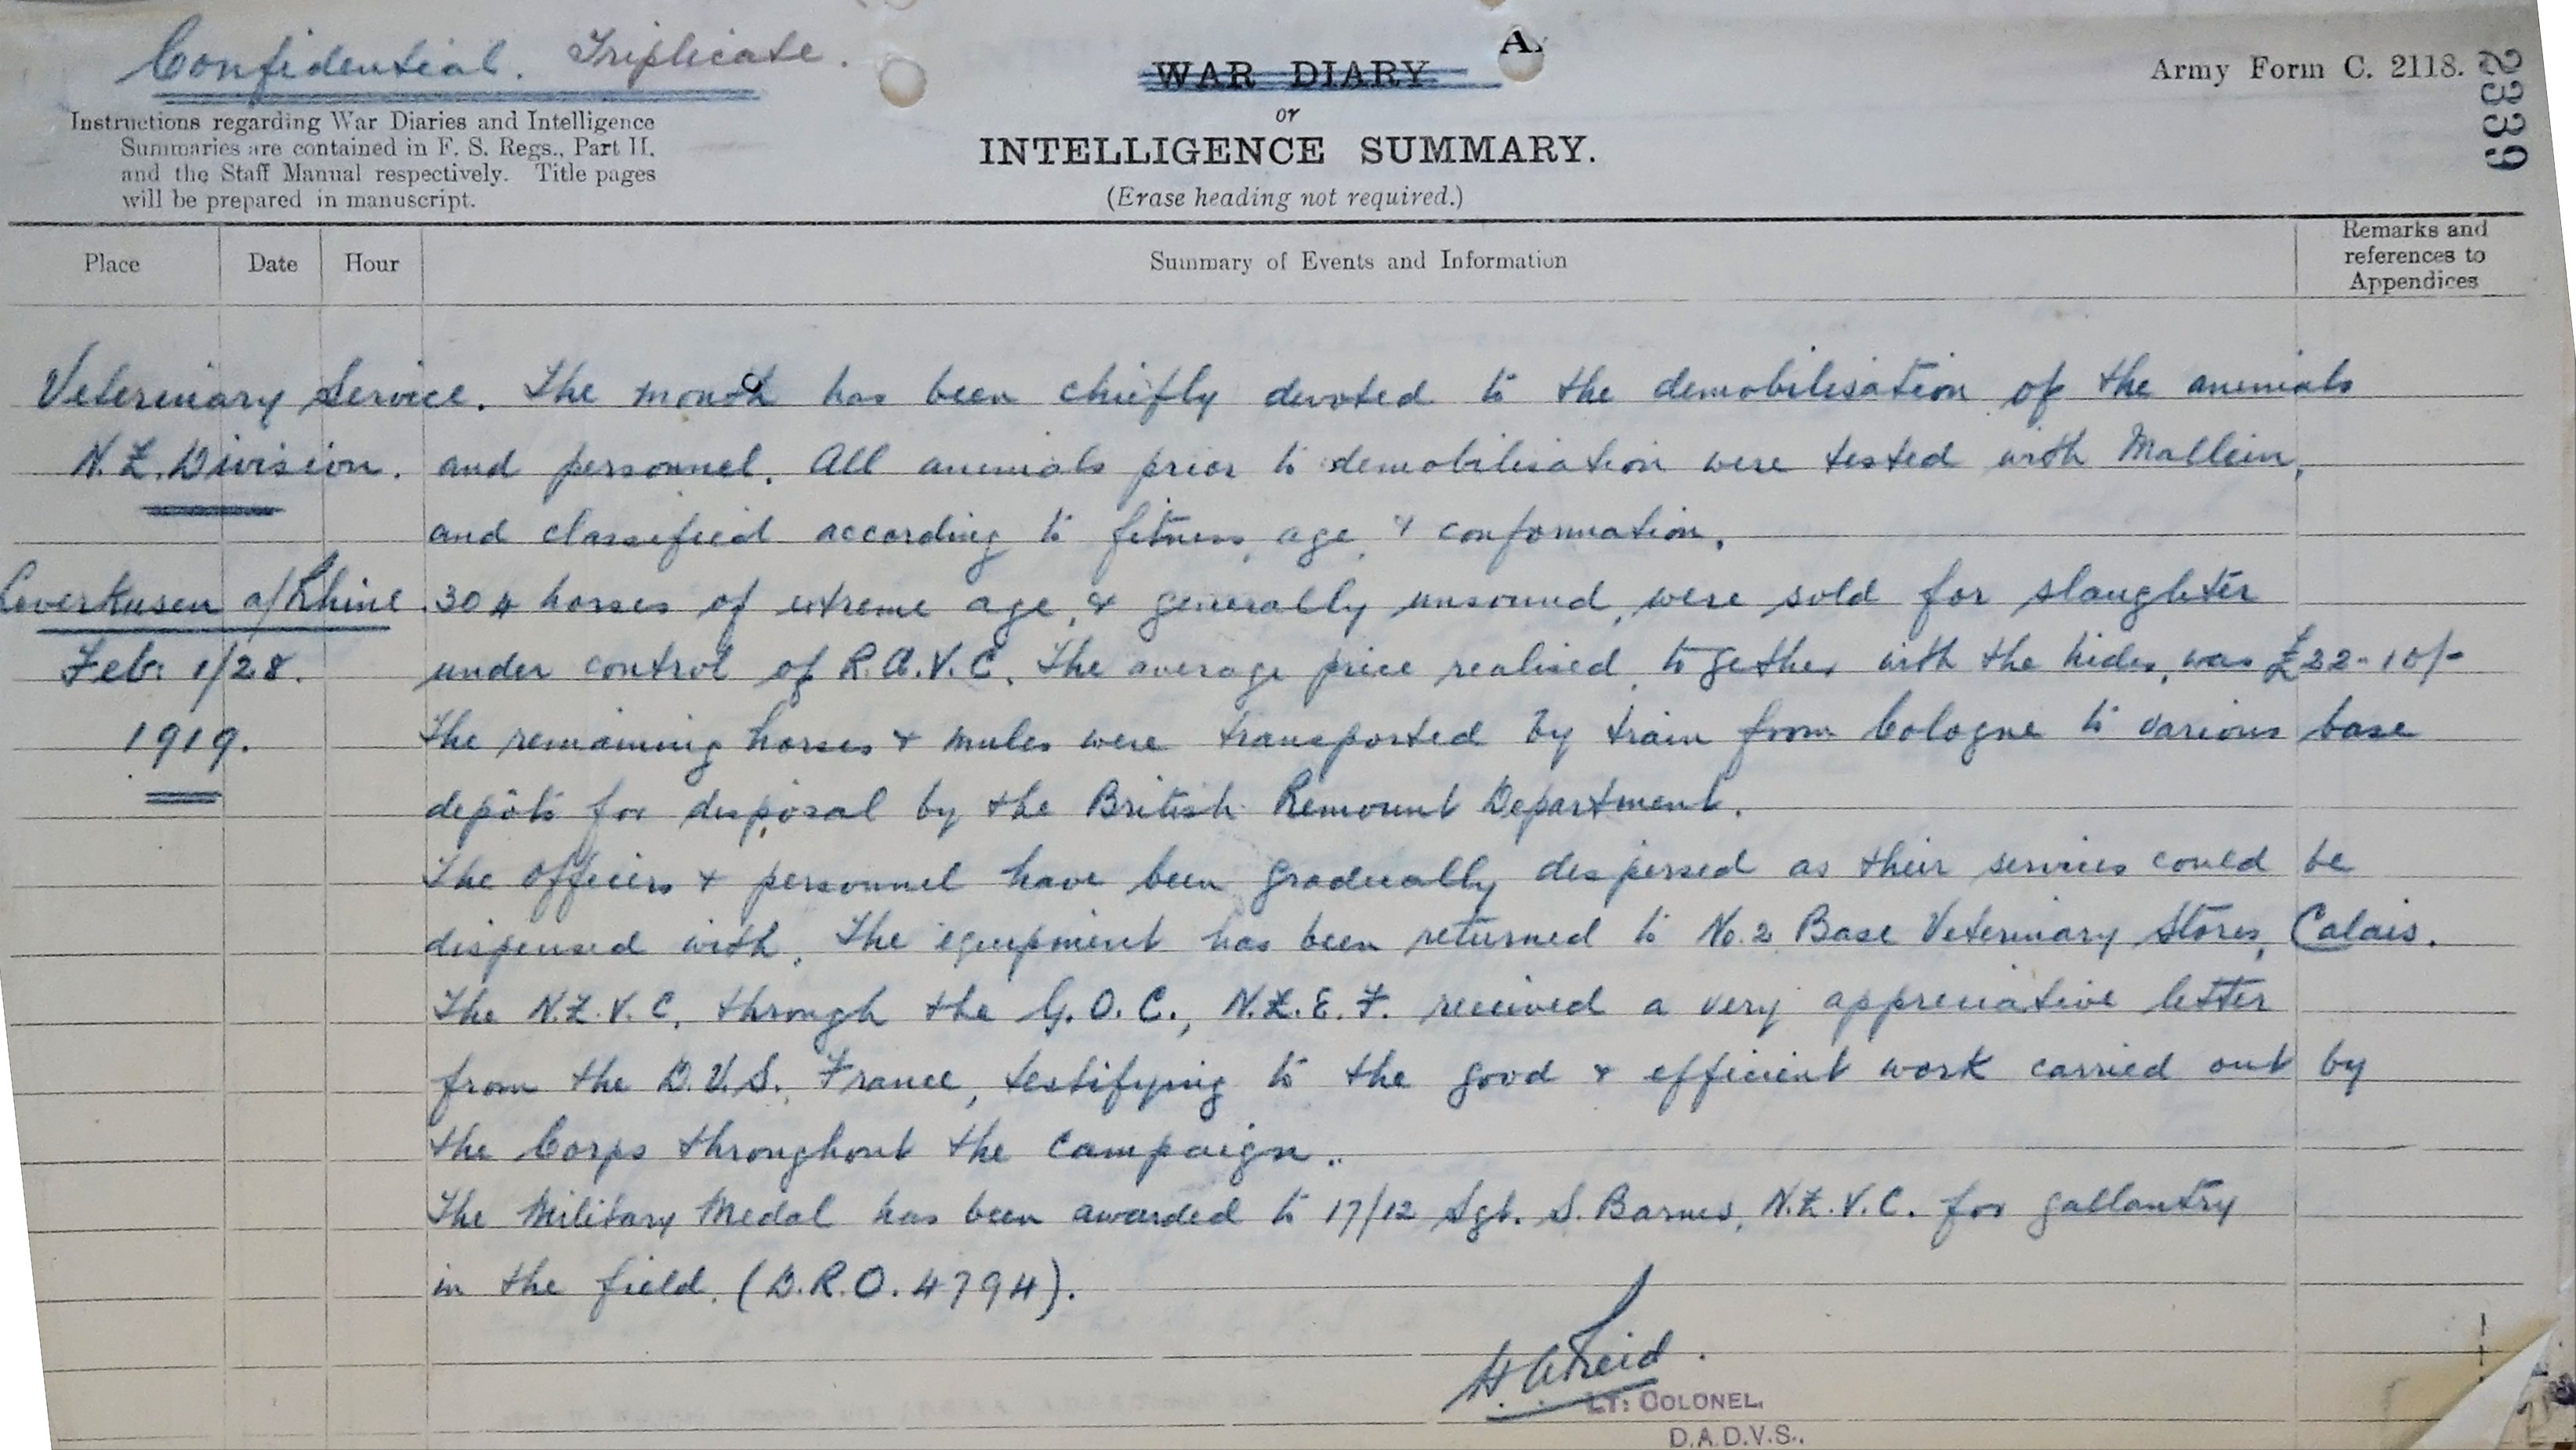 Confidential. Triplicate.
A.
WAR DIARY
or
INTELLIGENCE SUMMARY.
(Erase heading not required.)
Army Form C. 2118.
2339
Instructions regarding War Diaries and Intelligence
Summaries are contained in F. S. Regs., Part II.
and the Staff Manual respectively. Title pages
will be prepared in manuscript.
Place Date Hour Summary of Events and Information Remarks and
references to
Appendices
Veterinary Service. The month has been chiefly devoted to the demobilisation of the animals
N.Z. Division. and personnel. All animals prior to demobilisation were tested with Mallein,
and classified according to fitness, age, & conformation.
Leverkusen a/Rhine. 304 horses of extreme age, & generally unsound, were sold for slaughter
Feb: 1/28. under control of R.A.V.C. The average price realised, together with the hides, was £22-10/-
1919. The remaining horses & mules were transported by train from Cologne to various base
depôts for disposal by the British Remount Department.
The Officers & personnel have been gradually dispersed as their services could be
dispensed with. The equipment has been returned to No. 2 Base Veterinary Stores, Calais.
The N.Z.V.C. through the G.O.C., N.Z.E.F. received a very appreciative letter
from the D.V.S. France, testifying to the good & efficient work carried out by
the Corps throughout the campaign.
The Military Medal has been awarded to 17/12 Sgt. S. Barnes, N.Z.V.C. for gallantry
in the field. (D.R.O. 4794).
H A Reid.
LT: COLONEL,
D.A.D.V.S.,